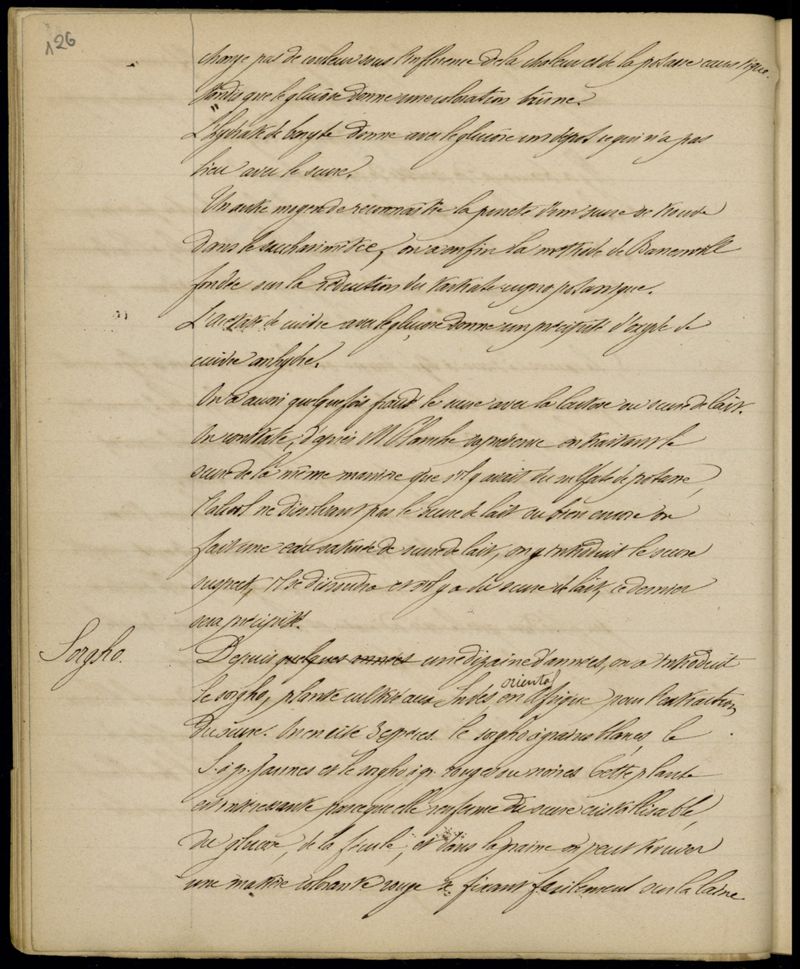 126
change pas de couleur sous l'influence de la chaleur et de la potasse caustique.
tandis que le glucose donne une coloration brune.
L'hydrate de baryte donne avec le glucose un dépot ce qui n'a pas
lieu avec le sucre.
Un autre moyen de reconnaître la pureté d'un sucre se trouve
dans le saccharimètre, on a enfin la méthode de Barreswill
fondée sur la réduction du tartrate cupro potassique.
L'acétate de cuivre avec le glucose donne un précipité d'oxyde de
cuivre anhydre.
On a aussi quelquefois fraudé le sucre avec la lactose ou sucre de lait.
On constate, d'après M. sa présence en traitant le
sucre de la même manière que s'il y avait du sulfate de potasse,
l'alcool ne dissolvant pas le sucre de lait ou bien encore on
fait une eau saturée de sucre de lait, on y introduit le sucre
suspect, il se dissoudra et s'il y a du sucre de lait, ce dernier
sera précipité.
Sorgho. Depuis quelques années une dizaine d'années, on a introduit
le sorgho, plante cultivée aux Indes en Afrique oriental pour l'extraction
du sucre. On en cite 3 espèces. le sorgho à grains blancs, le
S. à gr. jaunes et le sorgho à gr. rouges ou noires. Cette plante
est intéressante parce que elle renferme du sucre cristallisable,
du glucose, de la fécule, et dans la graine on peut trouver
une matière colorante rouge se fixant facilement sur la laine